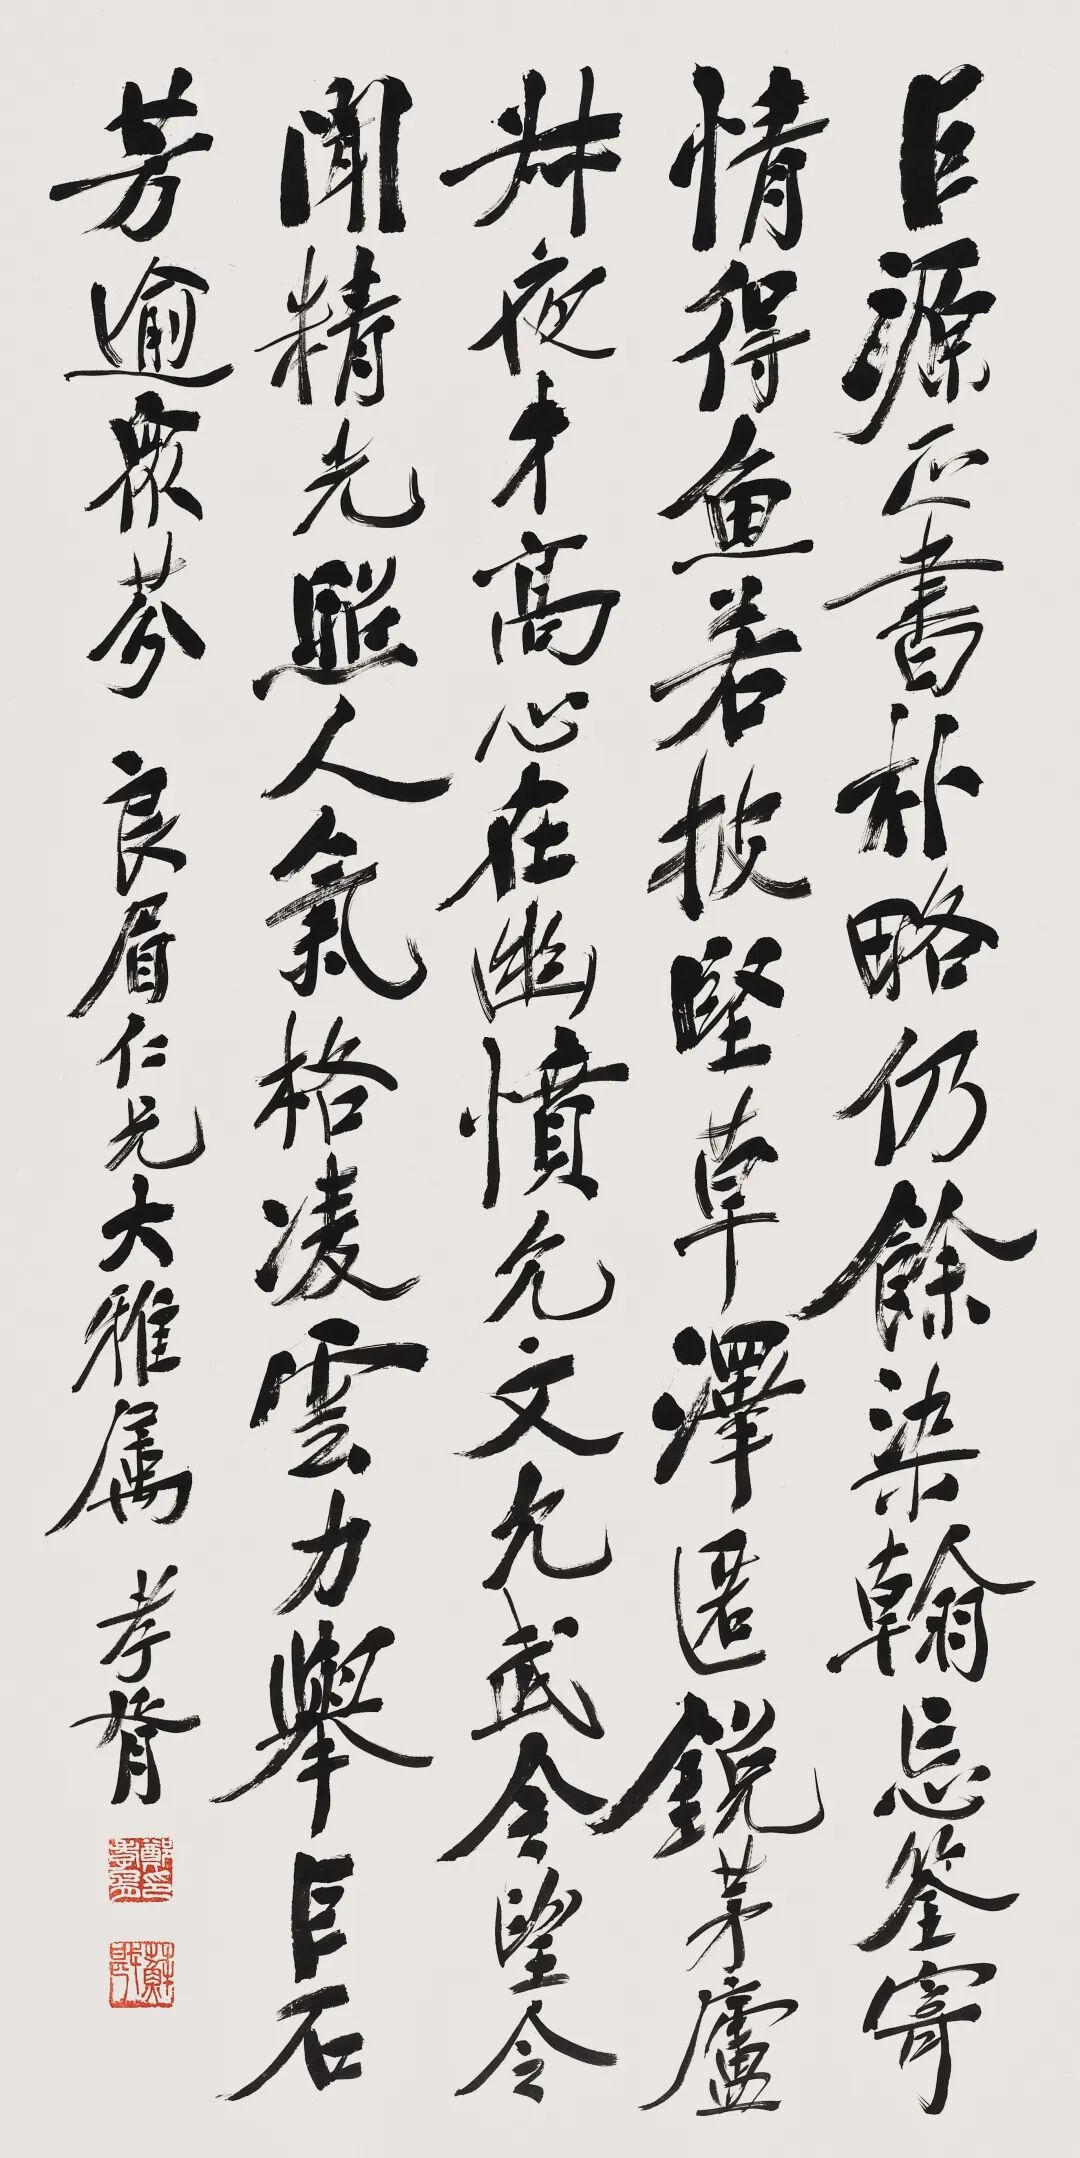 巨源正書朴略仍餘染翰忘筌寄
情得魚若披堅草澤匿銳茅廬
叔夜才高心在幽憤允文允武令望令
聞精光照人氣格凌雲力舉巨石
芳逾衆芬 良眉仁兄大雅属 孝胥
鄭印孝胥